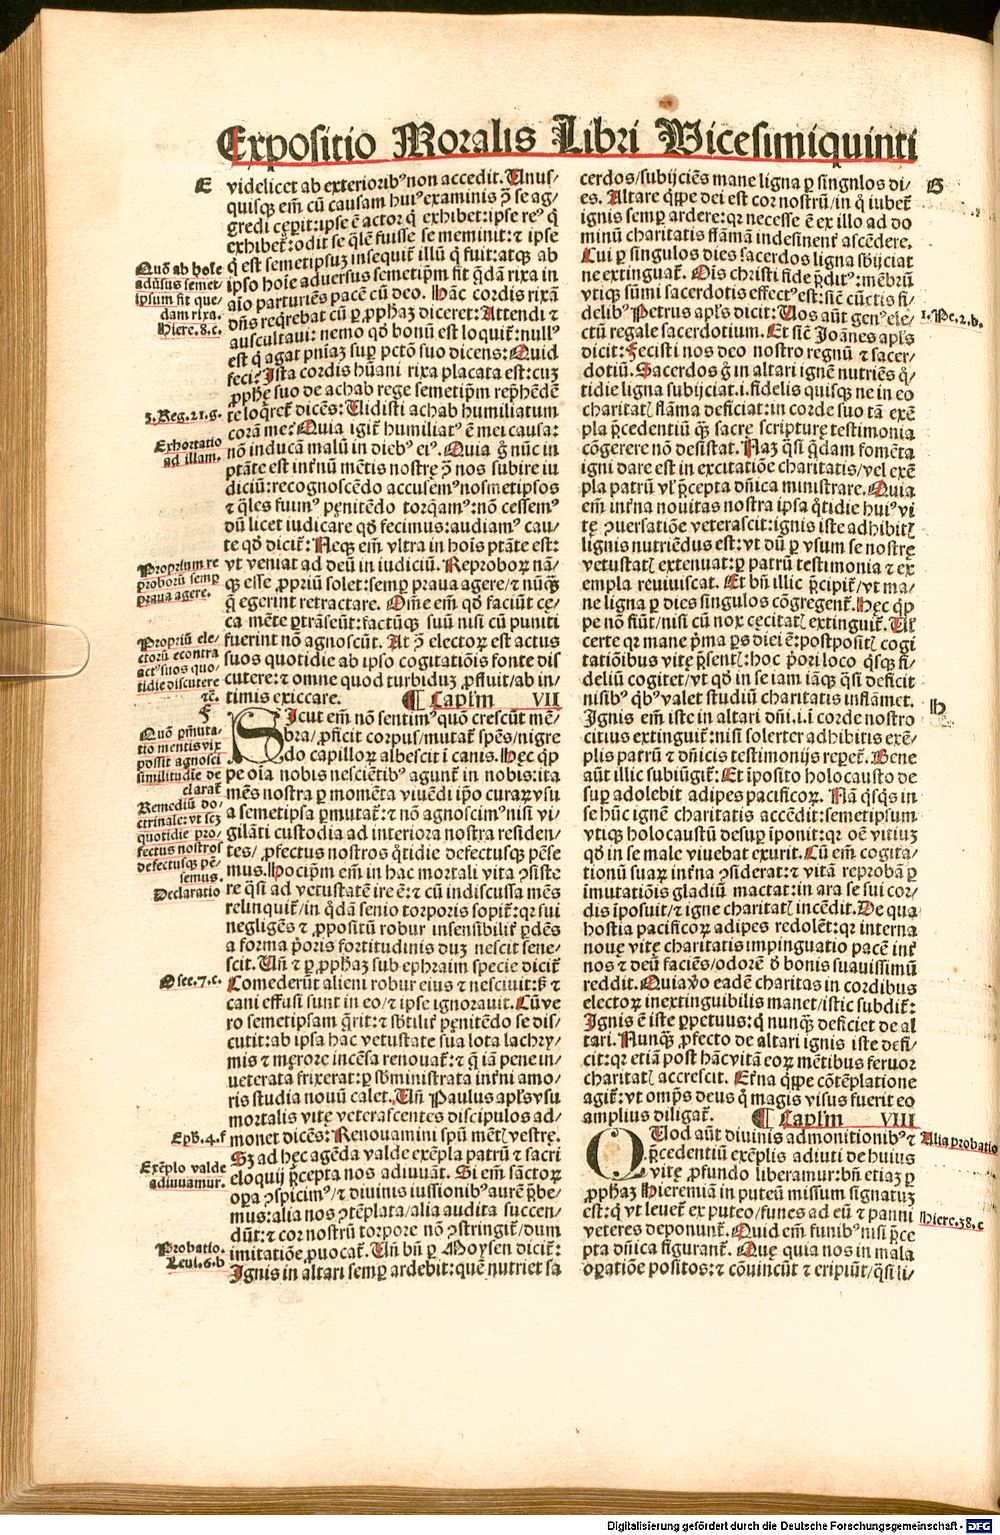 Expositio Moralis Libri Vicesimiquinti
E
videlicet ab exteriorib⁹ non accedit. Unus/
quisq̃ em̃ cũ causam hui⁹ examinis ꝯ̃ se ag/
gredi cęperit: ipse ẽ actor q̃ exhibet: ipse re⁹ q̃
exhibet̃: odit se q̃lẽ fuisse se meminit: ⁊ ipse
q̃ est semetipsuȝ insequit̃ illũ q̃ fuit: atq̃ ab
ipso hoĩe adversus semetip̃m fit q̃dã rixa in
aĩo parturiẽs pacẽ cũ deo. Hãc cordis rixã
dñs req̃rebat cũ ꝑ ꝓph̃aȝ diceret: Attendi ⁊
auscultavi: nemo qď bonũ est loquit̃: null⁹
est q̃ agat pñiaȝ suꝑ pctõ suo dicens: Quid
feci? Ista cordis hũani rixa placata est: cuȝ
ꝓph̃ę suo de achab rege semetip̃m rep̃hẽdẽ
te loq̃ret̃ dicẽs: Vidisti achab humiliatum
corã me: Quia igit̃ humiliat⁹ ẽ mei causa:
nõ inducã malũ in dieb⁹ ei⁹. Quia g̃ nũc in
ptãte est int̃nũ mẽtis nostrę ꝯ̃ nos subire iu
diciũ: recognoscẽdo accusem⁹ nosmetipsos
⁊ q̃les fuim⁹ pęnitẽdo torq̃am⁹: nõ cessem⁹
dũ licet iudicare qď fecimus: audiam⁹ cau/
te qď dicit̃: Neq̃ em̃ vltra in hoĩs ptãte est:
vt veniat ad deũ in iudiciũ. Reproboꝝ nã/
q̃ esse ꝓpriũ solet: semꝑ praua agere/ ⁊ nũq̃
q̃ egerint retractare. Om̃e em̃ qď faciũt cę/
ca mẽte ꝑtrãseũt: factũq̃ suũ nisi cũ puniti
fuerint nõ agnoscũt. At ꝯ̃ electoꝝ est actus
suos quotidie ab ipso cogitatiõis fonte dis
cutere: ⁊ omne quod turbiduȝ ꝓfluit/ ab in/
timis exiccare. ¶ Caplm̃ VII
Sicut em̃ nõ sentim⁹ quõ crescũt mẽ/
bra/ ꝓficit corpus/ mutat̃ spẽs/ nigre
do capilloꝝ albescit ĩ canis. Hęc q̃p
pe oĩa nobis nesciẽtib⁹ agunt̃ in nobis: ita
mẽs nostra ꝑ momẽta viuẽdi ip̃o curaꝝ vsu
a semetipsa ꝑmutat̃: ⁊ nõ agnoscim⁹ nisi vi/
gilãti custodia ad interiora nostra residen/
tes/ ꝓfectus nostros q̃tidie defectusq̃ pẽse
mus. Hocip̃m em̃ in hac mortali vita ꝯsiste
re q̃si ad vetustatẽ ire ẽ: ⁊ cũ indiscussa mẽs
relinquit̃/ in q̃dã senio torporis sopit̃: qꝛ sui
negligẽs ⁊ ꝓpositũ robur insensibilit̃ ꝑdẽs
a forma p̃oris fortitudinis duȝ nescit sene/
scit. Uñ ⁊ ꝑ ꝓph̃aȝ sub ephraim specie dicit̃
Comederũt alieni robur eius ⁊ nesciuit: sȝ ⁊
cani effusi sunt in eo/ ⁊ ipse ignorauit. Cũ ve
ro semetipsam q̃rit: ⁊ sb̃tilit̃ pęnitẽdo se dis/
cutit: ab ipsa hac vetustate sua lota lachry/
mis ⁊ męrore incẽsa renouat̃: ⁊ q̃ iã pene in/
ueterata frixerat: ꝑ sb̃ministrata int̃ni amo/
ris studia nouũ calet. Uñ Paulus apl̃s vsu
mortalis vitę veterascentes discipulos ad/
monet dicẽs: Renouamini spũ mẽtꝭ vestrę.
Sȝ ad hęc agẽda valde exẽpla patrũ ⁊ sacri
eloquij p̃cepta nos adiuuãt. Si em̃ sãctoꝝ
oꝑa ꝯspicim⁹/ ⁊ divinis iussionib⁹ aurẽ p̃be/
mus: alia nos ꝯtẽplata/ alia audita succen/
dũt: ⁊ cor nostrũ torpore nõ ꝯstringit̃/ dum
imitatiõe ꝓuocat̃. Uñ bñ ꝑ Moysen dicit̃:
Ignis in altari semꝑ ardebit: quẽ nutriet sa
Quõ ab hoĩe
adũsus semet/
ipsum fit que/
dam rixa.
Hiere. 8. c.
3. Reg. 21. g.
Exhortatio
ad illam.
Proprium re
proborũ semꝑ
praua agere.
Propriũ ele/
ctorũ econtra
act⁹ suos quo/
tidie discutere
⁊c̃.
F
Quõ ꝑmuta/
tio mentis vix
possit agnosci
similitudĩe de
clarat̃
Remediũ do/
ctrinale: vt scȝ
quotidie pro/
fectus nostros
defectusq̃ pẽ/
semus.
Declaratio
Osee. 7. c.
Eph. 4. f
Exẽplo valde
adiuuamur.
Probatio.
Leui. 6. b
cerdos/ subijciẽs mane ligna ꝑ singulos di/
es. Altare q̃ppe dei est cor nostrũ/ in q̃ iubet̃
ignis semꝑ ardere: qꝛ necesse ẽ ex illo ad do
minũ charitatis flãmã indesinent̃ ascẽdere.
Cui ꝑ singulos dies sacerdos ligna sb̃ijciat
ne extinguat̃. Õis christi fide p̃dit⁹: mẽbrũ
vtiq̃ sũmi sacerdotis effect⁹ est: sicũt cũctis fi/
delib⁹ Petrus apl̃s dicit: Uos aũt gen⁹ ele/
ctũ regale sacerdotium. Et sicũt Joãnes apl̃s
dicit: Fecisti nos deo nostro regnũ ⁊ sacer/
dotiũ. Sacerdos g̃ in altari ignẽ nutriẽs q̃/
tidie ligna subijciat. i. fidelis quisq̃ ne in eo
charitatꝭ flãma deficiat: in corde suo tã exẽ
pla p̃cedentiũ q̃ sacrę scripturę testimonia
cõgerere nõ desistat. Naȝ q̃si q̃dam fomẽta
igni dare est in excitatiõe charitatis/ vel exẽ
pla patrũ vl̃ p̃cepta dñica ministrare. Quia
em̃ int̃na nouitas nostra ipsa q̃tidie hui⁹ vi
tę ꝯuersatiõe veterascit: ignis iste adhibitꝭ
lignis nutriẽdus est: vt dũ ꝑ vsum se nostrę
vetustatꝭ extenuat: ꝑ patrũ testimonia ⁊ ex
empla reuiuiscat. Et bñ illic p̃cipit̃/ vt ma/
ne ligna ꝑ dies singulos cõgregent̃. Hęc q̃p
pe nõ fiũt/ nisi cũ nox cęcitatꝭ extinguit̃. Ul̃
certe qꝛ mane p̃ma ꝑs diei ẽ: postpositꝭ cogi
tatiõibus vitę p̃sentꝭ: hoc p̃ori loco q̃sq̃ fi/
deliũ cogitet/ vt qď in se iam iãq̃ q̃si deficit
nisib⁹ q̃b⁹ valet studiũ charitatis inflãmet.
Ignis em̃ iste in altari dñi. i. ĩ corde nostro
citius extinguit̃: nisi solerter adhibitis exẽ/
plis patrũ ⁊ dñicis testimonijs repet̃. Bene
aũt illic subiũgit̃: Et ĩposito holocausto de
suꝑ adolebit adipes pacificoꝝ. Nã q̃sq̃s in
se hũc ignẽ charitatis accẽdit: semetipsum
vtiq̃ holocaustũ desuꝑ ĩponit: qꝛ oẽ vitiuȝ
qď in se male viuebat exurit. Cũ em̃ cogita/
tionũ suaꝝ int̃na ꝯsiderat: ⁊ vitã reprobãꝑ
ĩmutatiõis gladiũ mactat: in ara se sui cor/
dis ĩposuit/ ⁊ igne charitatꝭ incẽdit. De qua
hostia pacificoꝝ adipes redolẽt: qꝛ interna
nouę vitę charitatis impinguatio pacẽ int̃
nos ⁊ deũ faciẽs/ odorẽ ď bonis suauissimũ
reddit. Quia ṽo eadẽ charitas in cordibus
electoꝝ inextinguibilis manet/ istic subdit̃:
Ignis ẽ iste ꝑpetuus: q̃ nunq̃ deficiet de al
tari. Nunq̃ ꝓfecto de altari ignis iste defi/
cit: qꝛ etiã post hãc vitã eoꝝ mẽtibus feruor
charitatꝭ accrescit. Et̃na q̃ppe cõtẽplatione
agit̃: vt omp̃s deus q̃ magis visus fuerit eo
amplius diligat̃. ¶ Caplm̃ VIII
Quod aũt divinis admonitionib⁹ ⁊
p̃cedentiũ exẽplis adiuti de huius
vitę ꝓfundo liberamur: bñ etiaȝ ꝑ
ꝓph̃aȝ Hieremiã in puteũ missum signatuȝ
est: q̃ vt leuet̃ ex puteo/ funes ad eũ ⁊ panni
veteres deponunt̃. Quid em̃ funib⁹ nisi p̃ce
pta dñica figurant̃. Quę quia nos in mala
oꝑatiõe positos: ⁊ cõuincũt ⁊ eripiũt/ q̃si li/
G
1. Pe. 2. b.
H
Alia probatio
Hiere. 38. c
Digitalisierung gefördert durch die Deutsche Forschungsgemeinschaft - DFG